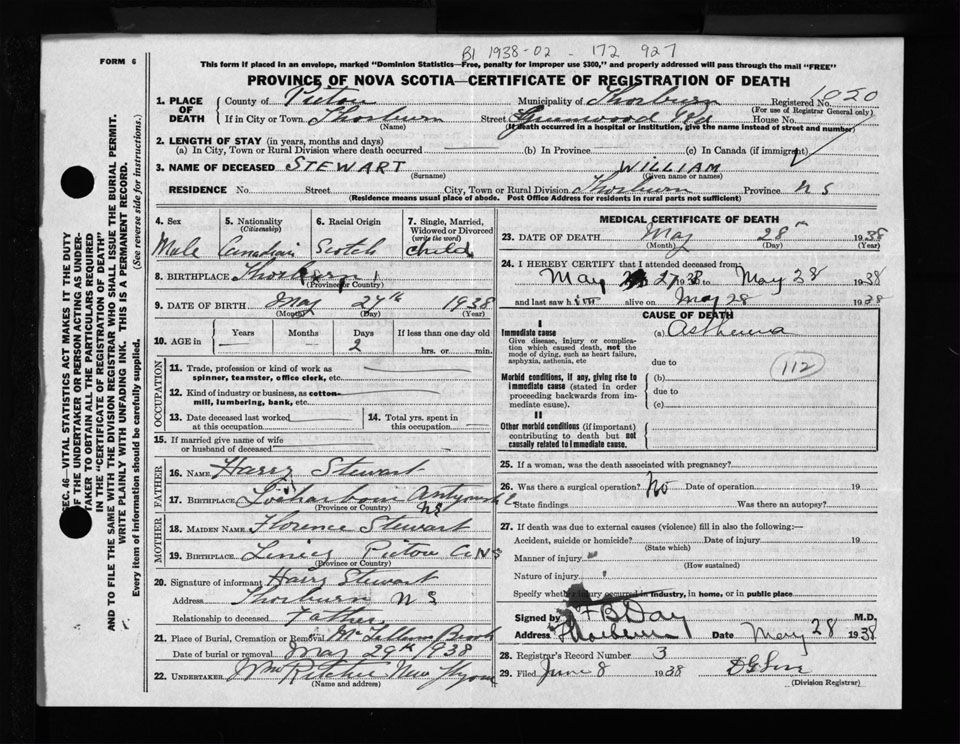 B1 1938-02 - 172 927
FORM 6
This form if placed in an envelope, marked "Dominion Statistics—Free, penalty for improper use $300," and properly addressed will pass through the mail "FREE"
PROVINCE OF NOVA SCOTIA—CERTIFICATE OF REGISTRATION OF DEATH
1. PLACE OF DEATH County of Pictou Municipality of Thorburn Registered No. 1020
(For use of Registrar General only)
If in City or Town Thorburn Street Greenwood Rd House No.
(Name) (If death occurred in a hospital or institution, give the name instead of street and number)
2. LENGTH OF STAY (in years, months and days)
(a) In City, Town or Rural Division where death occurred (b) In Province (c) In Canada (if immigrant)
3. NAME OF DECEASED STEWART WILLIAM
(Surname) (Given name or names)
RESIDENCE No. Street City, Town or Rural Division Thorburn Province N S
(Residence means usual place of abode. Post Office Address for residents in rural parts not sufficient)
4. Sex 5. Nationality (Citizenship) 6. Racial Origin 7. Single, Married, Widowed or Divorced (write the word)
Male Canadian Scotch Child
8. BIRTHPLACE Thorburn
(Province or Country)
9. DATE OF BIRTH May 27th 1938
(Month) (Day) (Year)
10. AGE in Years Months Days If less than one day old
— — 2 hrs. or min.
OCCUPATION
11. Trade, profession or kind of work as spinner, teamster, office clerk, etc.
12. Kind of industry or business, as cotton-mill, lumbering, bank, etc.
13. Date deceased last worked at this occupation
14. Total yrs. spent in this occupation
15. If married give name of wife or husband of deceased
FATHER
16. NAME Harry Stewart
17. BIRTHPLACE NS
(Province or Country)
MOTHER
18. MAIDEN NAME Florence Stewart
19. BIRTHPLACE Pictou Co NS
(Province or Country)
20. Signature of informant Harry Stewart
Address Thorburn N S
Relationship to deceased Father
21. Place of Burial, Cremation or Removal McLellans Brook
Date of burial or removal May 29th 1938
22. UNDERTAKER Wm Ritchie New
(Name and address)
MEDICAL CERTIFICATE OF DEATH
23. DATE OF DEATH May 28th 1938
(Month) (Day) (Year)
24. I HEREBY CERTIFY that I attended deceased from:
May 27 1938 to May 28 1938
and last saw him alive on May 28 1938
CAUSE OF DEATH
I
Immediate cause
Give disease, injury or complication which caused death, not the mode of dying, such as heart failure, asphyxia, asthenia, etc
(a) Asthenia
due to
112
Morbid conditions, if any, giving rise to immediate cause (stated in order proceeding backwards from immediate cause).
(b)
due to
(c)
II
Other morbid conditions (if important) contributing to death but not causally related to immediate cause.
25. If a woman, was the death associated with pregnancy?
26. Was there a surgical operation? No Date of operation 19
State findings Was there an autopsy?
27. If death was due to external causes (violence) fill in also the following:—
Accident, suicide or homicide? Date of injury 19
(State which)
Manner of injury
(How sustained)
Nature of injury
Specify whether injury occurred in industry, in home, or in public place
Signed by F B Day M.D.
Address Thorburn Date May 28 1938
28. Registrar's Record Number 3
29. Filed June 8 1938
(Division Registrar)
SEC. 46—VITAL STATISTICS ACT MAKES IT THE DUTY OF THE UNDERTAKER OR PERSON ACTING AS UNDERTAKER TO OBTAIN ALL THE PARTICULARS REQUIRED IN THE "CERTIFICATE OF REGISTRATION OF DEATH"
AND TO FILE THE SAME WITH THE DIVISION REGISTRAR WHO SHALL ISSUE THE BURIAL PERMIT.
WRITE PLAINLY WITH UNFADING INK. THIS IS A PERMANENT RECORD.
Every item of information should be carefully supplied. (See reverse side for instructions.)